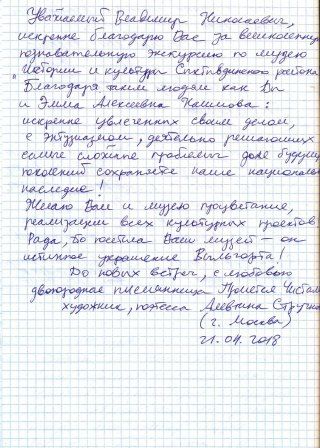 Уважаемый Владимир Николаевич,
искренне благодарю Вас за великолепную
познавательную экскурсию по музею
"Истории и культуры Сыктывдинского района
Благодаря таким людям как Вы
и Эмма Алексеевна Налимова:
искренне увлечённых своим делом,
с энтузиазмом, деятельно решающих
самые сложные проблемы для будущих
поколений сохраняете наше национальное
наследие!
Желаю Вам и музею процветания,
реализации всех культурных проектов
Рада, что посетила Ваш музей – он
истинное украшение Выльгорта!
До новых встреч, с любовью
двоюродная племянница
художник, поэтесса Алевтина
(г. Москва)
21.04.2018